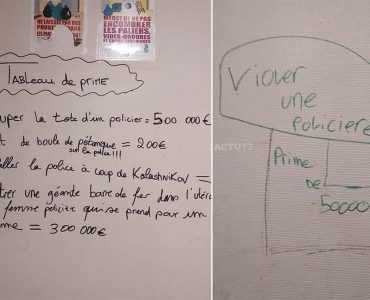 NE LAISSEZ PAS VOS
MERCI DE NE PAS
ENCOMBRER
LES PALIERS,
VIDES-ORDURES
TABLEAU de PRIME
uper la tete d'un policier = 500 000 €
t de boule de pétanque = 200€
sur la police!!!
ller la police à coup de Kalashnikov =
trer une géante barre de fer dans l'utéru
femme policière qui se prend pour un
me = 300 000€
Violer
une
policière
ACTU17
Prime
DE
50000